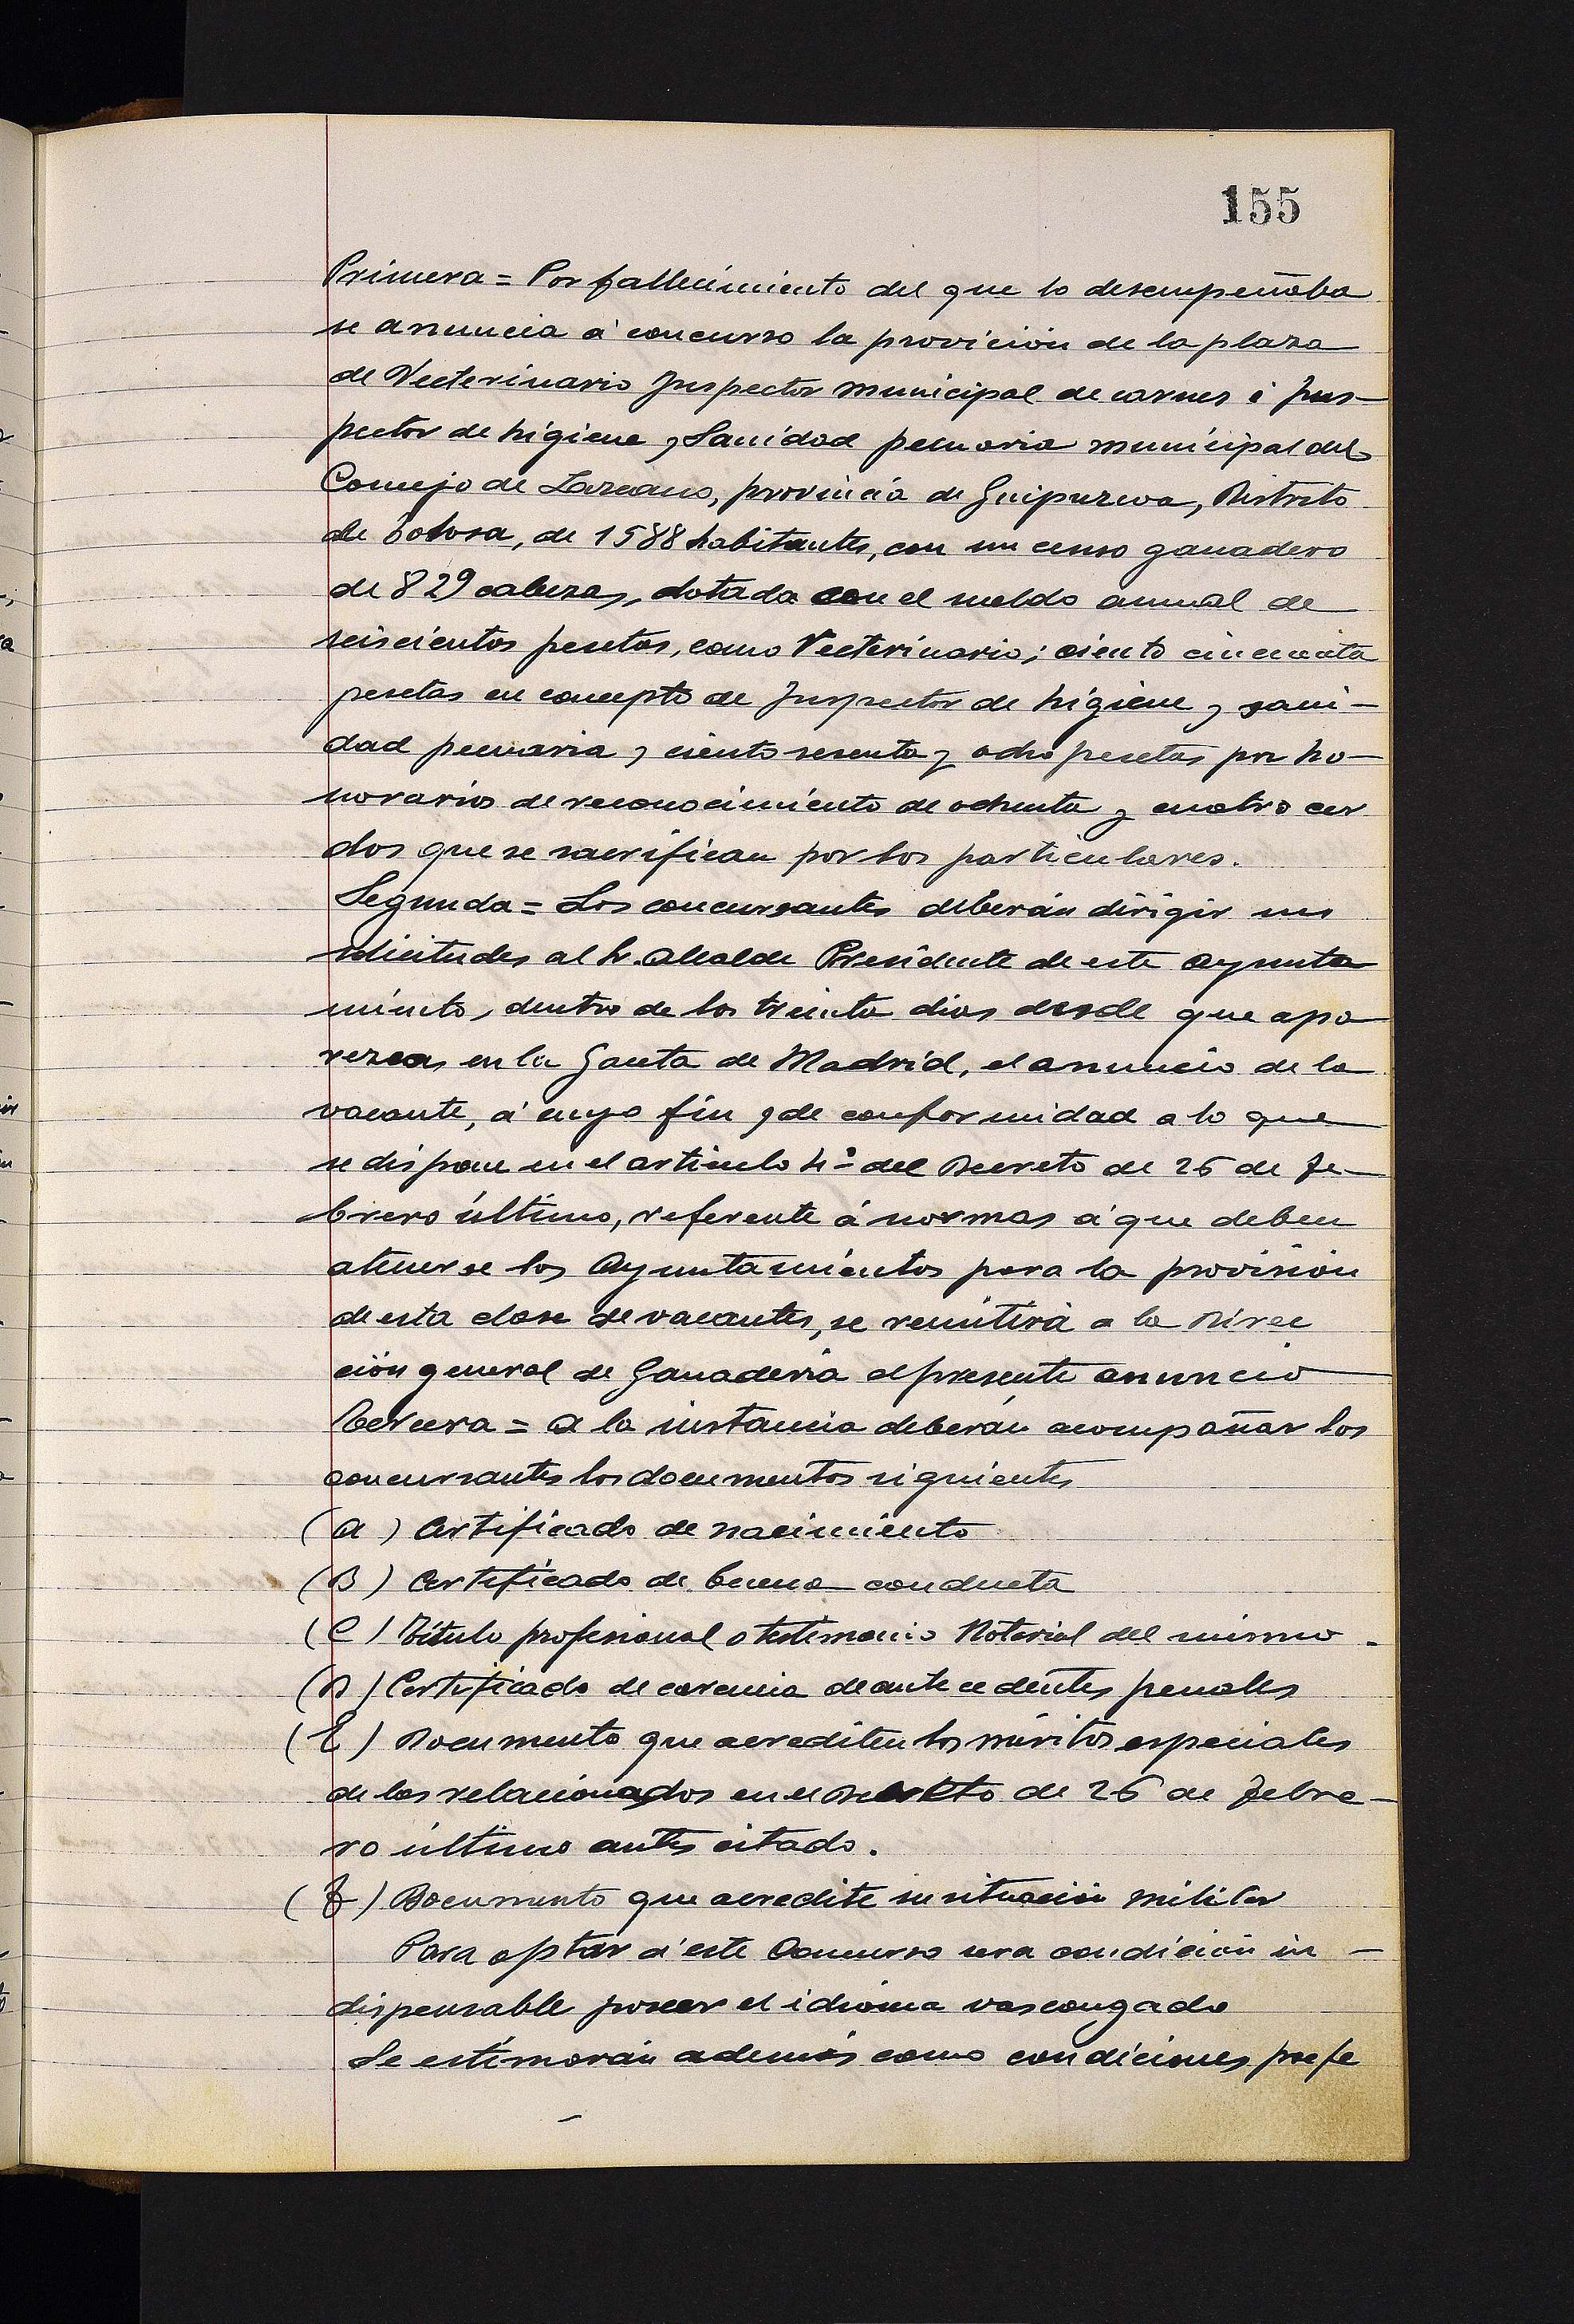 155
Primera = Por fallecimiento del que lo desempeñaba
se anuncia á concurso la provición de la plaza
de Vecterinario Inspector municipal de carnes é Ins-
pector de higiene y Sanidad pecuaria municipal del
Concejo de Lazcano, provincia de Guipuzcoa, Distrito
de Tolosa, de 1588 habitantes, con un censo ganadero
de 829 cabezas, dotada con el sueldo anual de
seiscientos pesetas, como Vecterinario; ciento cincuenta
pesetas en concepto de Inspector de higiene y sani-
dad pecuaria y ciento sesenta y ocho pesetas por ho-
norarios de reconocimiento de ochenta y cuatro cer
dos que se sacrifican por los particulares.
Segunda = Los concursantes deberán dirigir sus
solicitudes al Sr. Alcalde Presidente de este Ayunta
miento, dentro de los treinta dias desde que apa
rezcas en la Gaceta de Madrid, el anuncio de la
vacante, á cuyo fin y de conformidad a lo que
se dispone en el articulo 4º del Decreto de 26 de Fe-
brero último, referente á normas á que deben
atenerse los Ayuntamientos para la provisión
de esta clase de vacantes, se remitirá a la Direc
ción general de Ganaderia el presente anuncio
Tercera = A la instancia deberán acompañar los
concursantes los documentos siguientes
(A) Certificado de nacimiento
(B) Certificado de buena conducta
(C) Titulo profesional o testimonio Notarial del mismo.
(D) Certificado de carencia de antecedentes penales
(E) Documento que acrediten los méritos especiales
de los relacionados en el Decreto de 26 de Febre-
ro último antes citado.
(F) Documento que acredite su situación militar
Para optar á este Concurso sera condición in-
dispensable poseer el idioma vascongado
Se estimarán además como condiciones prefe